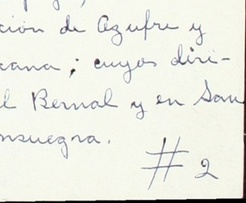 ción de Azufre y
cana; cuyos diri-
l Bernal y en San
nsuegra.
#2